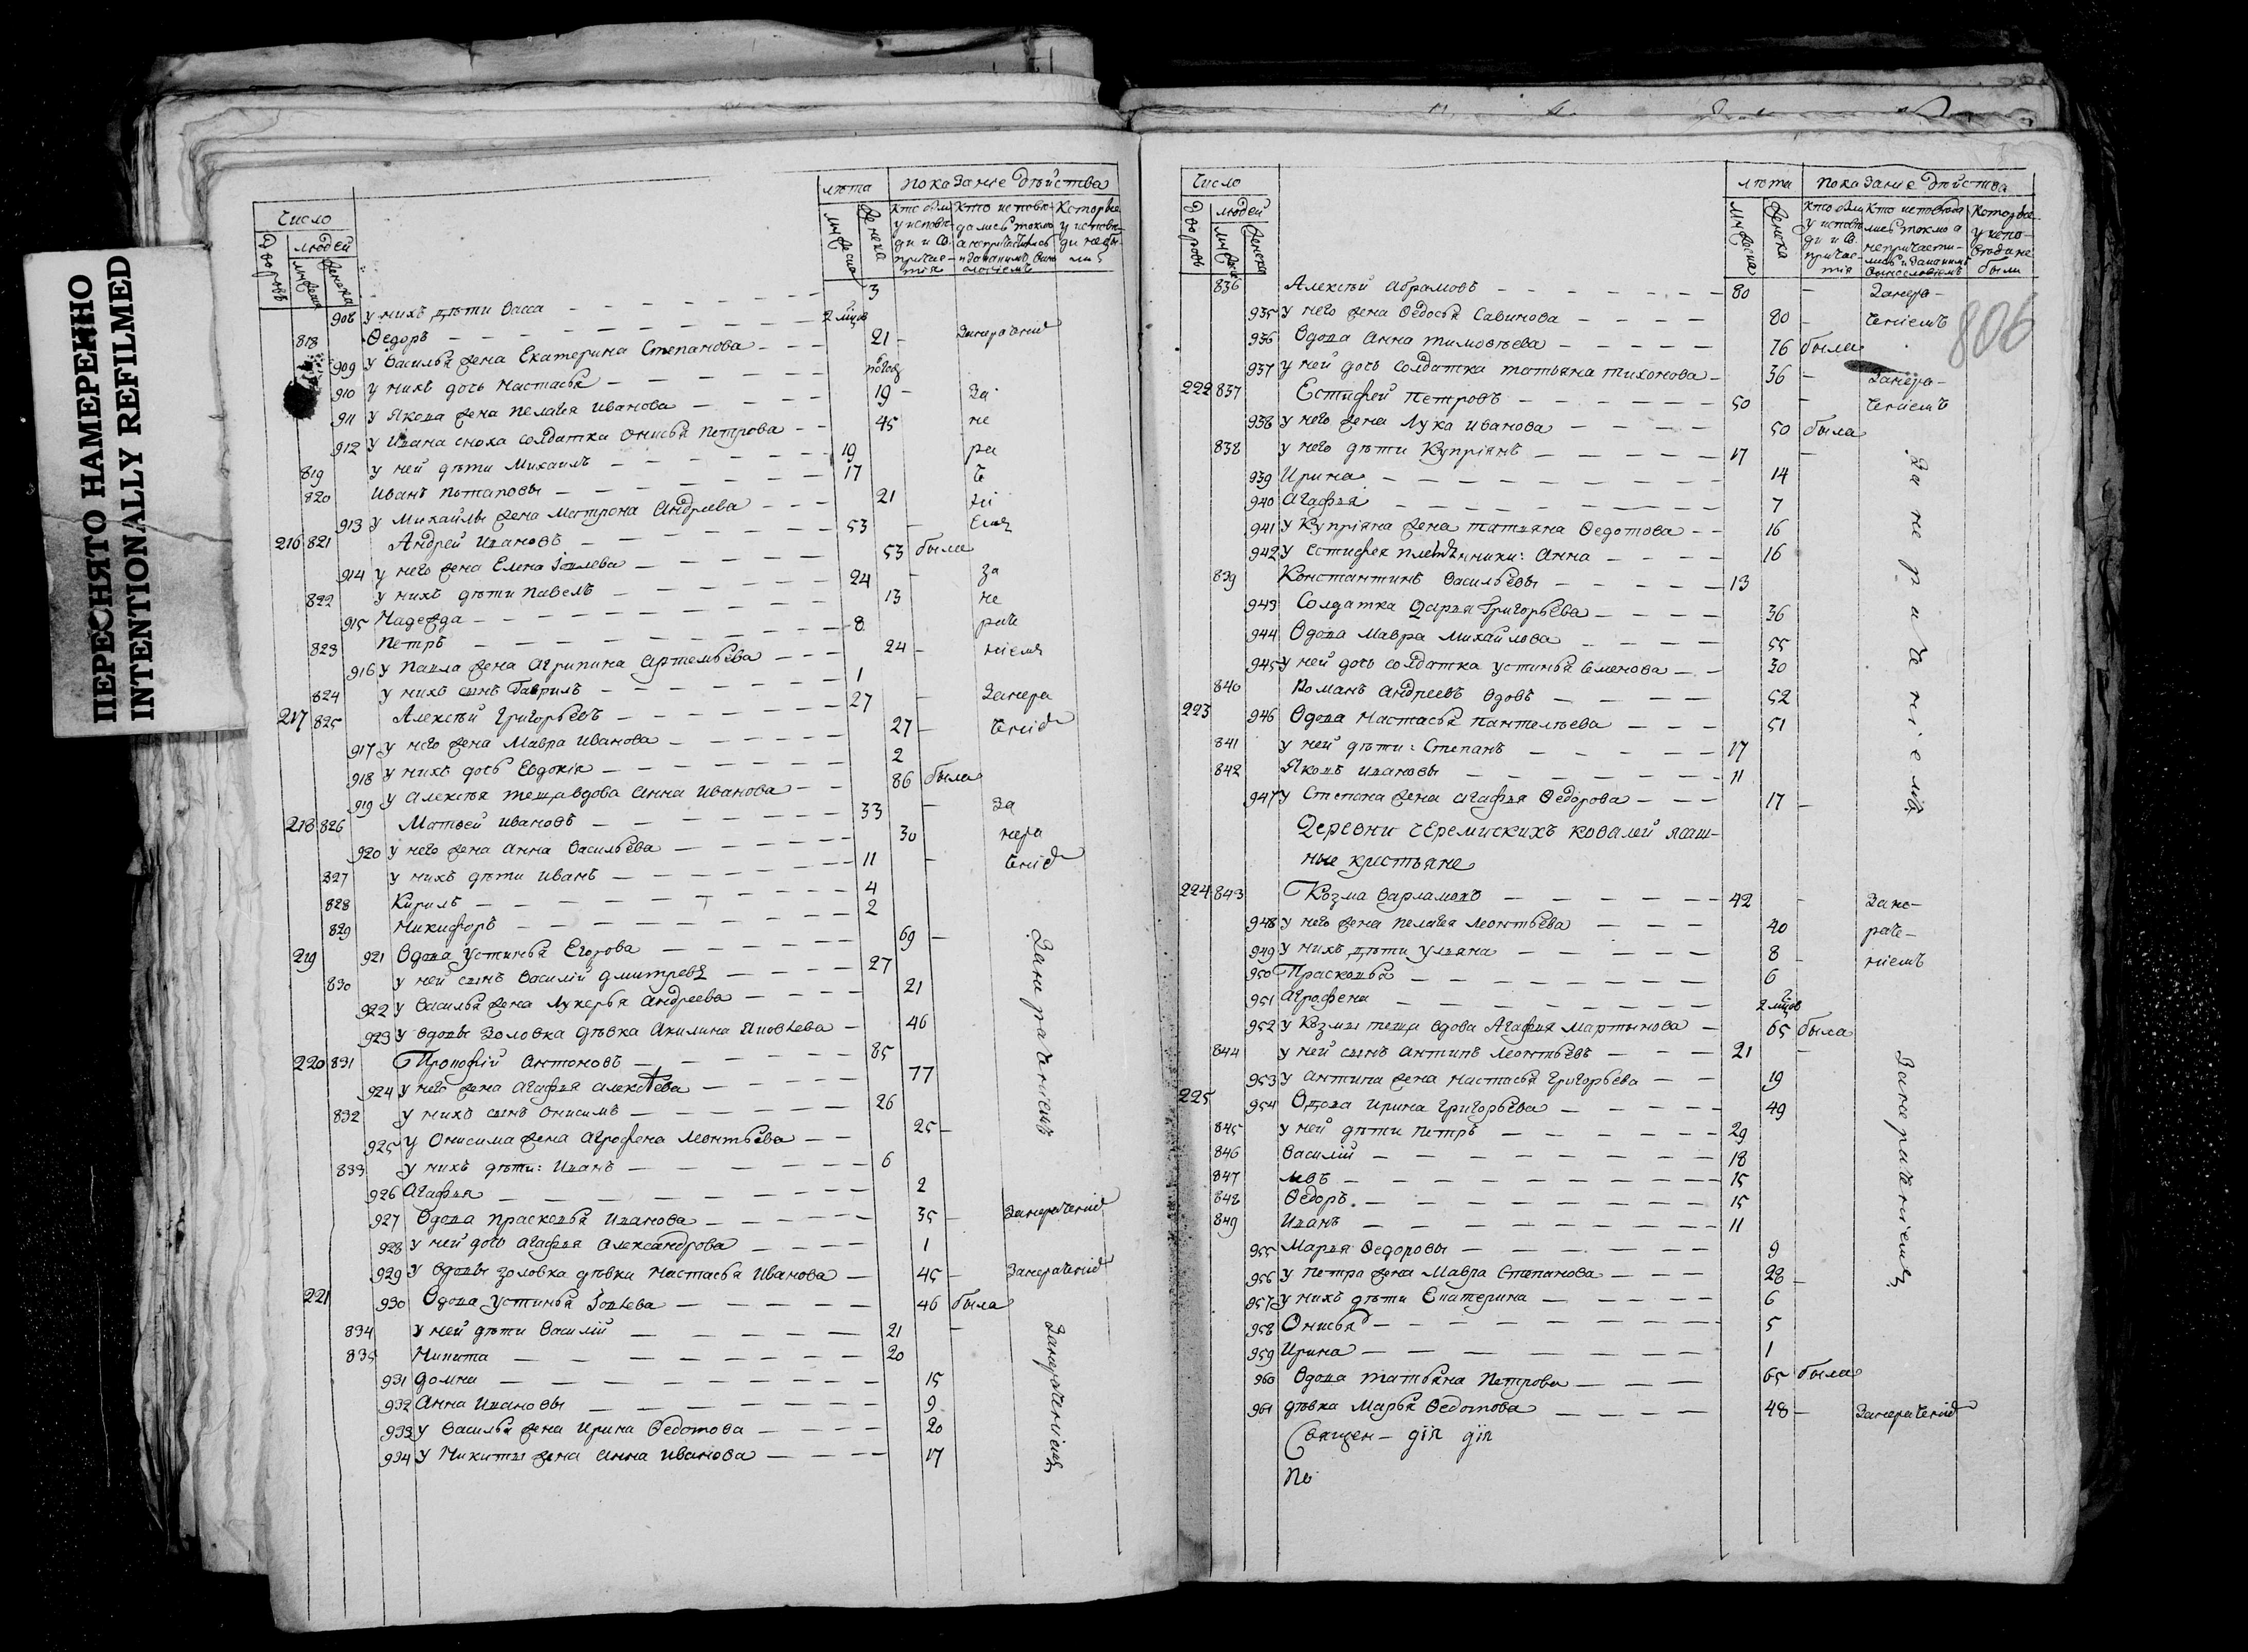 ПЕРЕСНЯТО НАМЕРЕННО
INTENTIONALLY REFILMED
Число
лѣта
показание дѣйства
дворовъ
людей
мужеска
женска
908 у нихъ дѣти Васса 3
818 Ѳедоръ 2 мцов
909 у Василья жена Екатерина Степанова 21 занерачениê
910 у нихъ дочь Настасья
911 у Якова жена Пелагея Иванова 19 за
912 у Ивана сноха солдатка Онисья Петрова 45 не
819 у ней дѣти Михаилъ 19 ра
820 Иванъ Потаповы 17 ч
913 у Михайлы жена Матрена Андреева 21 ні
216 821 Андрей Ивановъ 53 емъ
914 у него жена Елена Іовлева 53 была
822 у нихъ дѣти Павелъ 24 за
915 Надежда 13 не
823 Петръ 8 рач
916 у Павла жена Агрипина Артемьева 24 ніемъ
824 у нихъ сынъ Гаврилъ 1
217 825 Алексѣй Григорьевъ 27 занера
917 у него жена Мавра Иванова 27 чениê
918 у нихъ дочь Евдокия 2
919 у Алексѣя теща вдова Анна Иванова 86 была
218 826 Матвей Ивановъ 33 за
920 у него жена Анна Васильева 30 нера
827 у нихъ дѣти Иванъ 11 чениê
828 Кирилъ 4
829 Никифоръ 2
219 921 Вдова Устинья Егорова 69
830 у ней сынъ Василій Дмитревъ 27
922 у Василья жена Лукерья Андреева 21
923 у вдовы золовка дѣвка Акилина Яковлева 46
220 831 Прокофій Антоновъ 85
924 у него жена Агафья Алексѣева 77
832 у нихъ сынъ Онисимъ 26
925 у Онисима жена Агрофена Леонтьева 25
833 у нихъ дѣти: Иванъ 6
926 Агафья 2
927 Вдова Прасковья Иванова 35 занерачениê
928 у ней дочь Агафья Александрова 1
929 у вдовы золовка дѣвка Настасья Иванова 45 занерачениê
221 930 Вдова Устинья Іовлева 46 была
834 у ней дѣти Василій 21
835 Никита 20
931 Домна 15
932 Анна Ивановы 9
933 у Василья жена Ирина Ѳедотова 20
934 у Никиты жена Анна Иванова 17
занерачениемъ
занерачениемъ
Число
лѣта
показание дѣйства
дворовъ
людей
мужеска
женска
836 Алексѣй Абрамовъ 80 занера-
935 у него жена Ѳедосья Савинова 80 чениемъ
936 Вдова Анна Тимоѳѣева 76 была
937 у ней дочь солдатка Татьяна Тихонова 36 занера-
222 837 Естифей Петровъ 50 чениемъ
938 у него жена Лука Иванова 50 была
838 у него дѣти Купріянъ 17
939 Ирина 14
940 Агафья 7
941 у Купріяна жена Татьяна Ѳедотова 16
942 у Естифея племянники: Анна 16
839 Константинъ Васильевы 13
943 Солдатка Дарья Григорьева 36
944 Вдова Мавра Михайлова 55
945 у ней дочь солдатка Устинья Семенова 30
840 Романъ Андреевъ вдовъ 52
223 946 Вдова Настасья Пантелѣева 51
841 у ней дѣти: Степанъ 17
842 Яковъ Ивановы 11
947 у Степана жена Агафья Ѳедорова 17
занерачениемъ
Деревни Черемискихъ Ковалей ясаш-
ные крестьяне
224 843 Козма Варламовъ 42 зане-
948 у него жена Пелагея Леонтьева 40 раче-
949 у нихъ дѣти Ульяна 8 ніемъ
950 Прасковья 6
951 Агрофена 2 мцов
952 у Козмы теща вдова Агафья Мартынова 65 была
844 у ней сынъ Антипъ Леонтьевъ 21
953 у Антипа жена Настасья Григорьева 19
225 954 Вдова Ирина Григорьева 49
845 у ней дѣти Петръ 29
846 Василій 18
847 Левъ 15
848 Ѳедоръ 15
849 Иванъ 11
955 Марья Ѳедоровы 9
956 у Петра жена Мавра Степанова 28
957 у нихъ дѣти Екатерина 6
958 Онисья 5
959 Ирина 1
960 Вдова Татьяна Петрова 65 была
961 дѣвка Марья Ѳедотова 48 занерачениê
занерачениемъ
Священ-
По
806